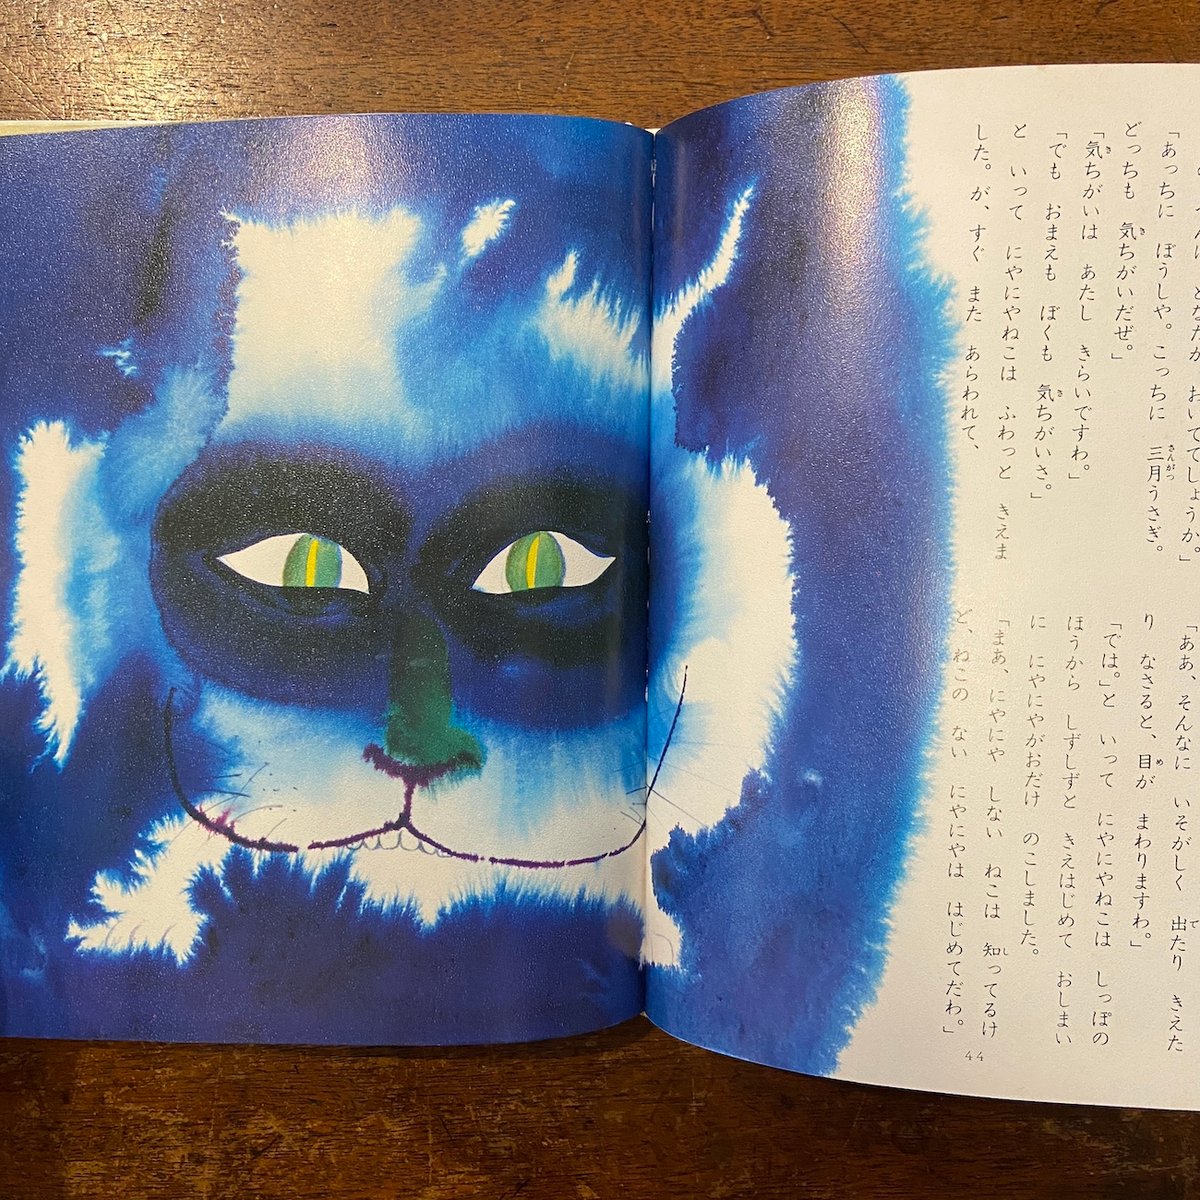 おいででしょうか。」
「あっちに ぼうしや。こっちに 三月うさぎ。
どっちも 気ちがいだぜ。」
「気ちがいは あたし きらいですわ。」
「でも おまえも ぼくも 気ちがいさ。」
と いって にやにやねこは ふわっと きえま
した。が、すぐ また あらわれて、
「ああ、そんなに いそがしく 出たり きえた
り なさると、目が まわりますわ。」
「では。」と いって にやにやねこは しっぽの
ほうから しずしずと きえはじめて おしまい
に にやにやがおだけ のこしました。
「まあ、にやにや しない ねこは 知ってるけ
ど、ねこの ない にやにやは はじめてだわ。」
44